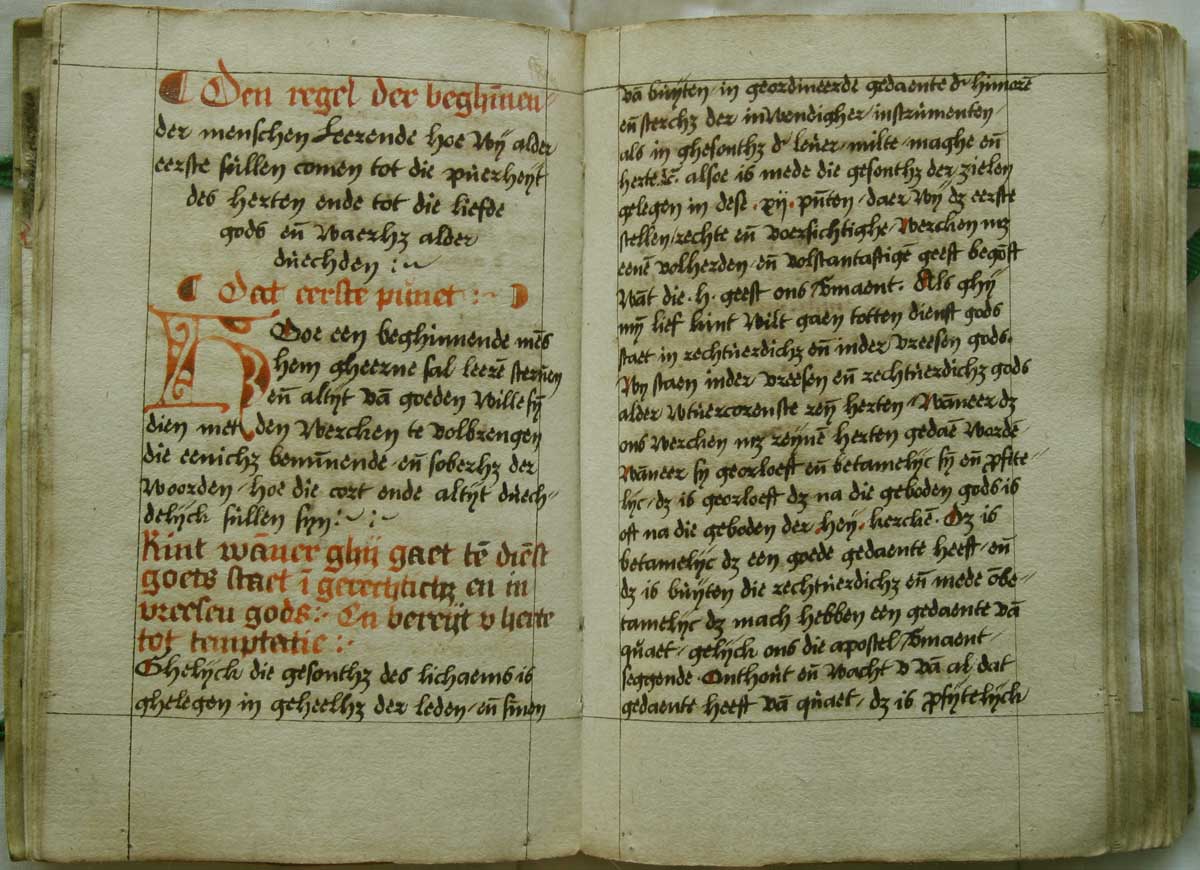 Den regel der beghīnen⸗
der menschen Leerende hoe wÿ alder
eerste sùllen comen tot die pùerheÿt
des herten ende tot die liefde
gods eñ waerhꝫ alder
dùechden :~
Dat eerste pùnct :~
Hoe een beghinnende mēs
hem gheerne sal leerē sterùen
eñ altÿt vā goeden wille sȳ
dien met den wercken te volbrengen
die eenichꝫ bemīnende · eñ soberhꝫ der
woorden · hoe die cort ende altÿt dùech⸗
delÿck sùllen sÿn :~ :~
Kint wāner ghÿ gaet tē diēst
goets staet ī gerechtichꝫ en in
vreesen gods :~ En bereÿt v herte
tot temptatie :~
Ghelÿck die gesonthꝫ des lichaems is
ghelegen in geheelhꝫ der leden · eñ sīnen
vā bùÿten · in geordineerde gedaente dʳ hùmorē
eñ sterchꝫ der inwendigher · instrùmenten ·
als in ghesonthꝫ dʳ leùer · milte · maghe eñ
herte · &c̄. alsoe is mede die gesonthꝫ der zielen
gelegen in dese · xij · pùtē · daer wÿ dꝫ eerste
stellen · rechte eñ voersichtighe · wercken mꝫ
eenē volherden · eñ volstantastigē geest begōst
wāt die · h · geest ons vmaent · Als ghÿ
mȳ lief kint wilt gaen totten dienst gods
staet in rechtùerdichꝫ eñ inder vreesen gods ·
wy staen inder vreesen eñ rechtùerdichꝫ gods
alder wtùercorenste reȳ herten · wāneer dꝫ
ons wercken mꝫ reÿnē herten gedaē wordē
wāneer sÿ georloeft eñ betamelÿc sȳ eñ ꝓfite⸗
lÿc · dꝫ is georloeft dꝫ na die geboden gods is
oft na die geboden der · heÿ · kerckē · Dꝫ is
betamelÿc dꝫ een goede gedaente heeft · eñ
dꝫ is bùÿten die rechtùerdichꝫ eñ mede ōbe⸗
tamelÿc dꝫ mach hebben een gedaente vā
qùaet · gelÿck ons die apostel vmaent ·
seggende · Onthoùt eñ wacht v vā al dat
gedaente heeft vā qùaet · dꝫ is ꝓfÿtelÿck